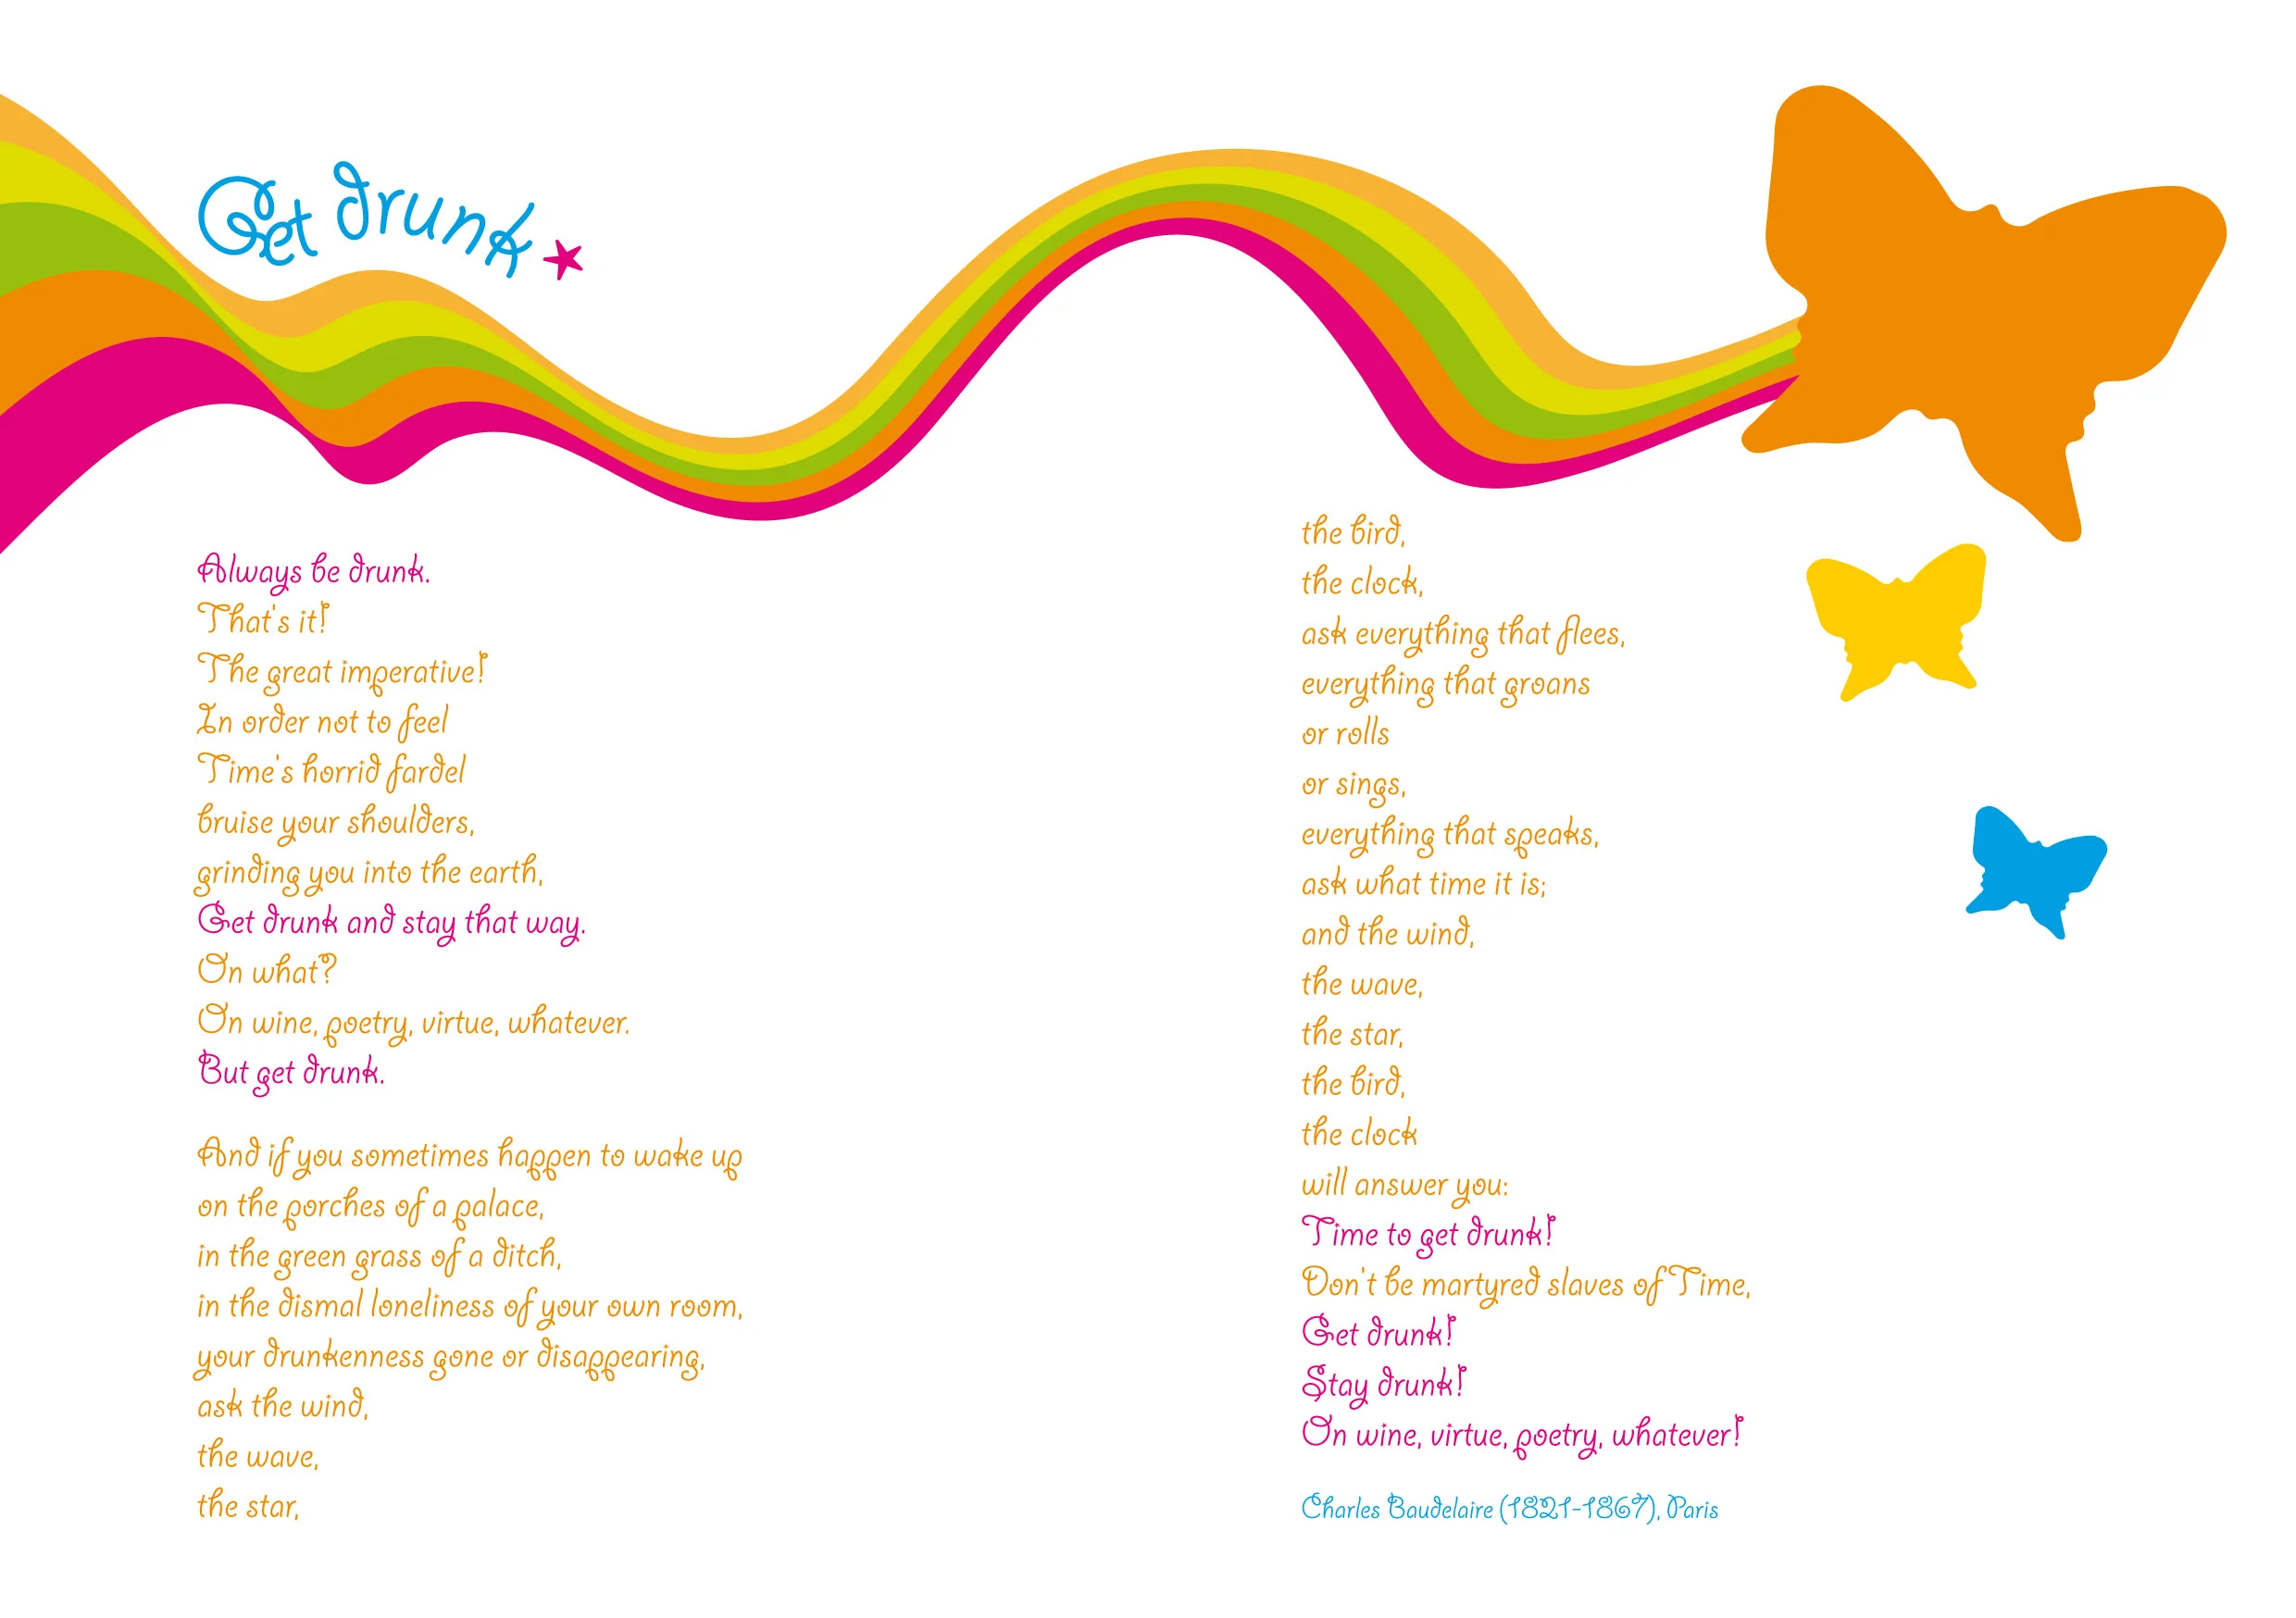 Get drunk
Always be drunk.
That's it!
The great imperative!
In order not to feel
Time's horrid fardel
bruise your shoulders,
grinding you into the earth,
Get drunk and stay that way.
On what?
On wine, poetry, virtue, whatever.
But get drunk.
And if you sometimes happen to wake up
on the porches of a palace,
in the green grass of a ditch,
in the dismal loneliness of your own room,
your drunkenness gone or disappearing,
ask the wind,
the wave,
the star,
the bird,
the clock,
ask everything that flees,
everything that groans
or rolls
or sings,
everything that speaks,
ask what time it is;
and the wind,
the wave,
the star,
the bird,
the clock
will answer you:
Time to get drunk!
Don't be martyred slaves of Time,
Get drunk!
Stay drunk!
On wine, virtue, poetry, whatever!
Charles Baudelaire (1821-1867), Paris